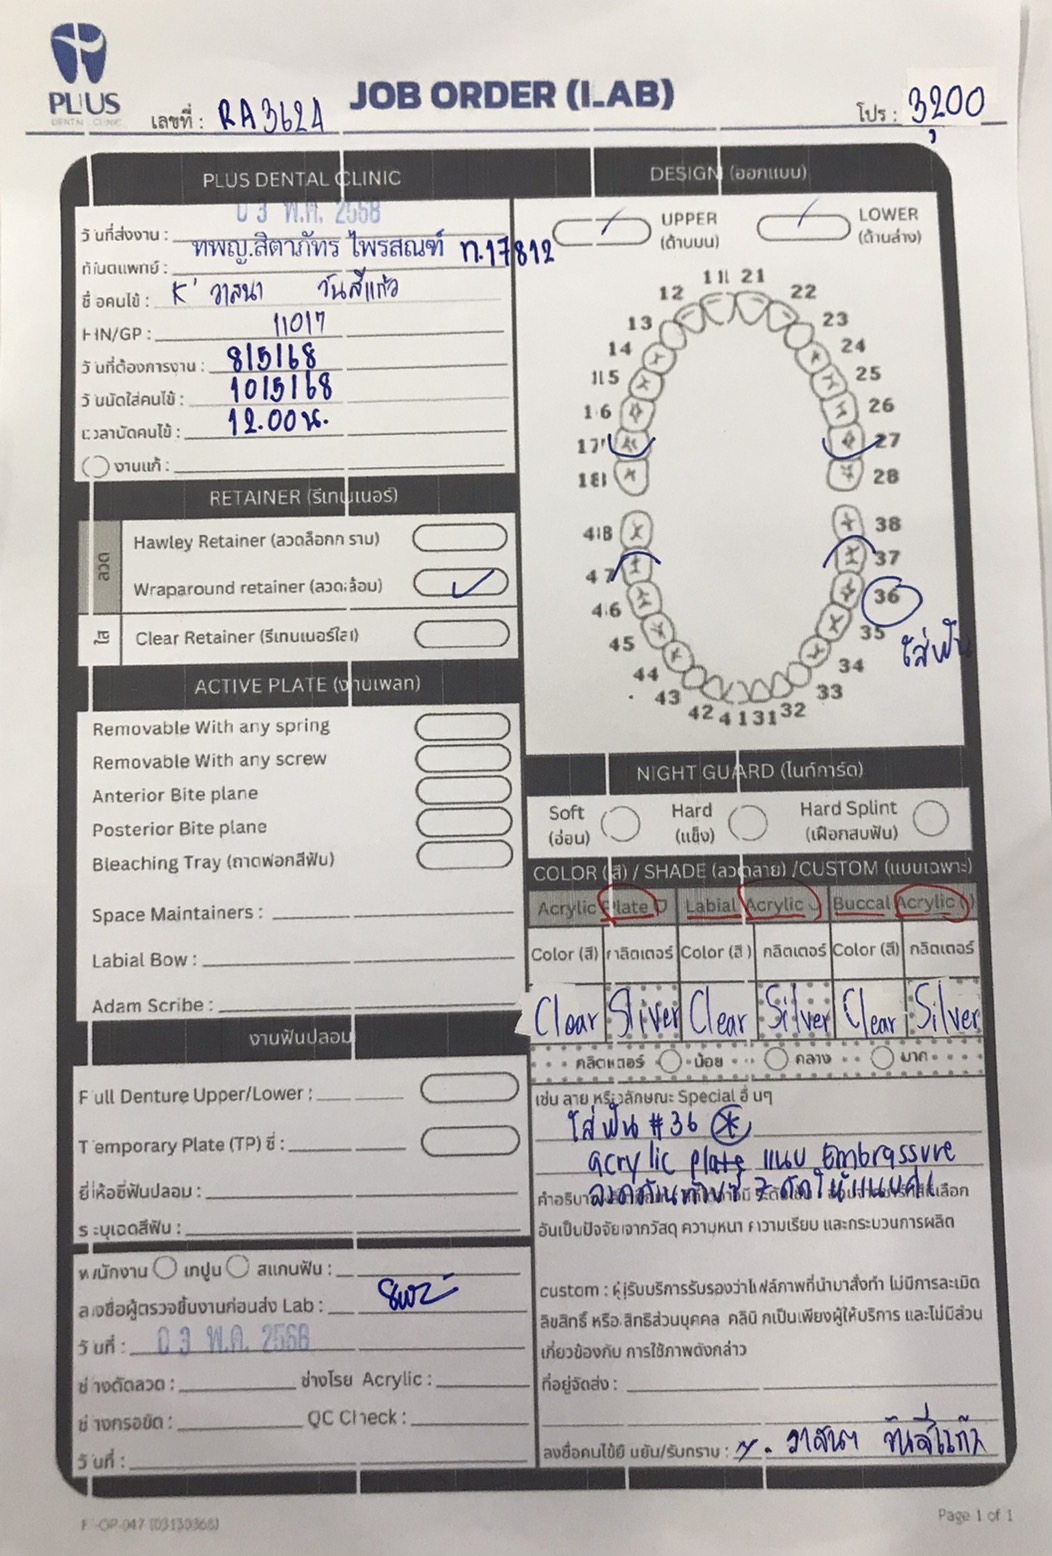 PLUS
DENTAL CLINIC
JOB ORDER (LAB)
เลขที่ : RA3624
โปร : 3,200
PLUS DENTAL CLINIC
03 พ.ค. 2568
วันที่ส่งงาน :
ทันตแพทย์ : ทพญ.สิตาภัทร ไพรสณฑ์ ท.17812
ชื่อคนไข้ : K' วาสนา วันสีแก้ว
HN/GP : 11017
วันที่ต้องการงาน : 8/5/68
วันนัดใส่คนไข้ : 10/5/68
เวลานัดคนไข้ : 12.00 น.
งานแก้ :
RETAINER (รีเทนเนอร์)
ลวด
Hawley Retainer (ลวดล็อกกราม)
Wraparound retainer (ลวดล้อม)
ใส
Clear Retainer (รีเทนเนอร์ใส)
ACTIVE PLATE (งานเพลท)
Removable With any spring
Removable With any screw
Anterior Bite plane
Posterior Bite plane
Bleaching Tray (ถาดฟอกสีฟัน)
Space Maintainers :
Labial Bow :
Adam Scribe :
งานฟันปลอม
Full Denture Upper/Lower :
Temporary Plate (TP) ซี่ :
ยี่ห้อซี่ฟันปลอม :
ระบุเฉดสีฟัน :
พนักงาน เทปูน สแกนฟัน :
ลงชื่อผู้ตรวจชิ้นงานก่อนส่ง Lab :
วันที่ : 03 พ.ค. 2568
ช่างดัดลวด : ช่างโรย Acrylic :
ช่างกรอขัด : QC Check :
วันที่ :
DESIGN (ออกแบบ)
UPPER
(ด้านบน)
LOWER
(ด้านล่าง)
11 21
12 22
13 23
14 24
15 25
16 26
17 27
18 28
48 38
47 37
46 36
45 35
ใส่ฟัน
44 34
43 33
42 41 31 32
NIGHT GUARD (ไนท์การ์ด)
Soft
(อ่อน)
Hard
(แข็ง)
Hard Splint
(เฝือกสบฟัน)
COLOR (สี) / SHADE (ลวดลาย) /CUSTOM (แบบเฉพาะ)
Acrylic Plate Labial Acrylic Buccal Acrylic
Color (สี) กลิตเตอร์ Color (สี) กลิตเตอร์ Color (สี) กลิตเตอร์
Clear Sliver Clear Silver Clear Silver
กลิตเตอร์ น้อย กลาง มาก
เช่น ลาย หรือลักษณะ Special อื่นๆ
ใส่ฟัน #36 *
acrylic plate แนบ Embrassure
อันเป็นปัจจัยจากวัสดุ ความหนา ความเรียบ และกระบวนการผลิต
custom : ผู้รับบริการรับรองว่าไฟล์ภาพที่นำมาสั่งทำ ไม่มีการละเมิด
ลิขสิทธิ์ หรือ สิทธิส่วนบุคคล คลินิกเป็นเพียงผู้ให้บริการ และไม่มีส่วน
เกี่ยวข้องกับ การใช้ภาพดังกล่าว
ที่อยู่จัดส่ง :
ลงชื่อคนไข้ยืนยัน/รับทราบ : วาสนา วันสีแก้ว
Page 1 of 1